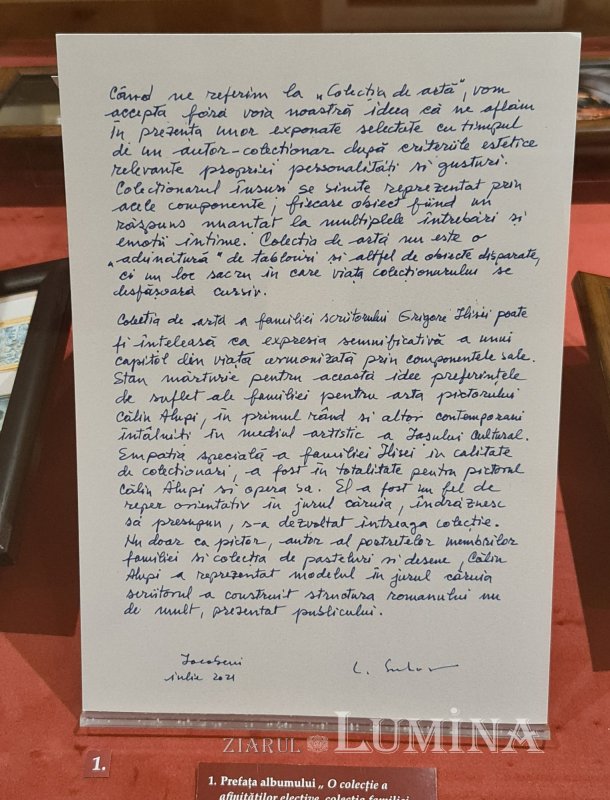 Când ne referim la „Colecția de artă”, vom
accepta fără voia noastră ideea că ne aflăm
în prezența unor exponate selectate cu timpul
de un autor-colecționar după criteriile estetice
relevante propriei personalități si gusturi.
Colecționarul însuși se simte reprezentat prin
acele componente; fiecare obiect fiind un
răspuns nuanțat la multiplele întrebări și
emoții intime. Colecția de artă nu este o
„adunătură” de tablouri si altfel de obiecte disparate,
ci un loc sacru în care viața colecționarului se
desfășoară cursiv.
Colectia de artă a familiei scriitorului Grigore Ilisei poate
fi înteleasă ca expresia semnificativă a unui
capitol din viața armonizată prin componentele sale.
Stau mărturie pentru această idee preferințele
de suflet ale familiei pentru arta pictorului
Călin Alupi, în primul rând si altor contemporani
întâlniți în mediul artistic a Iașului Cultural.
Empatia specială a familiei Ilisei în calitate
de colecționari, a fost în totalitate pentru pictorul
Călin Alupi si opera sa. El a fost un fel de
reper orientativ în jurul căruia, îndrăznesc
să presupun, s-a dezvoltat întreaga colecție.
Nu doar ca pictor, autor al portretelor membrilor
familiei si colecția de pasteluri si desene, Călin
Alupi a reprezentat modelul în jurul căruia
scriitorul a construit structura romanului nu
de mult, prezentat publicului.
Iacobeni
iulie 2021
ZIARUL LUMINA
1.
1. Prefața albumului „ O colecție a
afinităților elective, colecția familiei